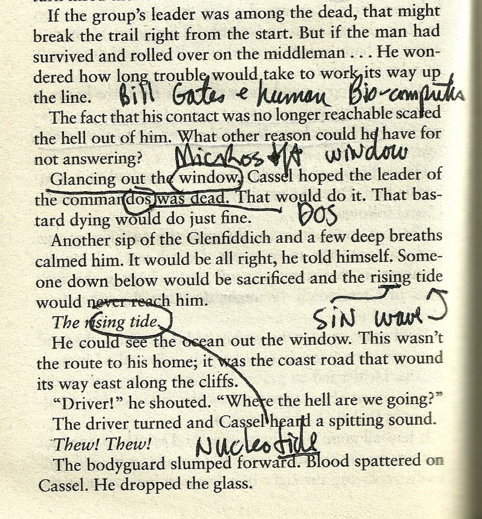 If the group's leader was among the dead, that might
break the trail right from the start. But if the man had
survived and rolled over on the middleman . . . He won-
dered how long trouble would take to work its way up
the line. Bill Gates e human Bio-computer
The fact that his contact was no longer reachable scared
the hell out of him. What other reason could he have for
not answering? Microsoft window
Glancing out the window, Cassel hoped the leader of
the commandos was dead. That would do it. That bas-
tard dying would do just fine. DOS
Another sip of the Glenfiddich and a few deep breaths
calmed him. It would be all right, he told himself. Some-
one down below would be sacrificed and the rising tide
would never reach him.
SiN wave
The rising tide
He could see the ocean out the window. This wasn't
the route to his home; it was the coast road that wound
its way east along the cliffs.
"Driver!" he shouted. "Where the hell are we going?"
The driver turned and Cassel heard a spitting sound.
Thew! Thew! Nucleotide
The bodyguard slumped forward. Blood spattered on
Cassel. He dropped the glass.